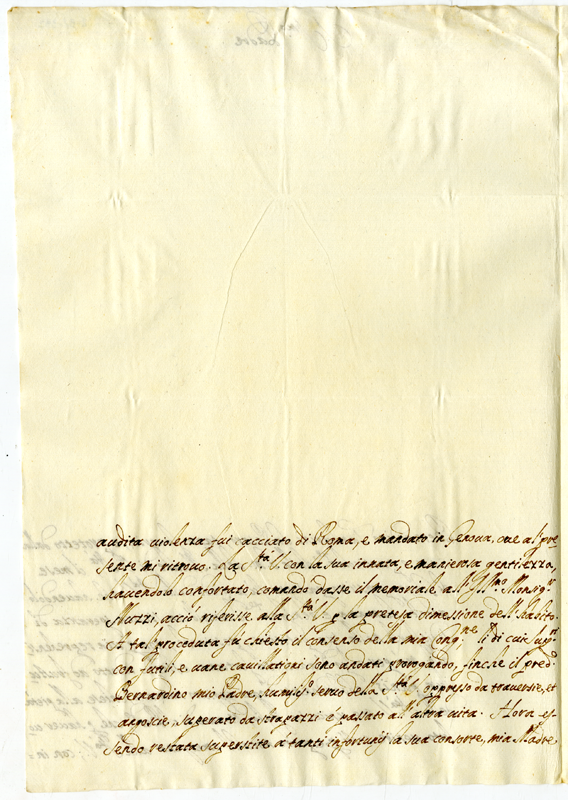 audita violenza fui cacciato di Roma, e mandato in Genova, ove al pre
sente mi ritrovo. La S.tà V. con la sua innata, e manierosa gentilezza,
havendolo confortato, comandò dasse il memoriale all' Ill.mo Monsig.r
Muzzi, acciò riferisse alla S.tà V. p la pretesa dimessione dell' habito.
A tal proceduta fu chiesto il consenso della mia Cong.ne, li di cui
con futili, e vane cavillationi sono andati prorogando, finche il pred.o
Bernardino mio Padre, humiliss.o servo della S.tà V. oppresso da traversie, et
angoscie, superato da strapazzi è passato all' altra vita. Hora es-
sendo restata superstite à tanti infortunij la sua consorte, mia Madre